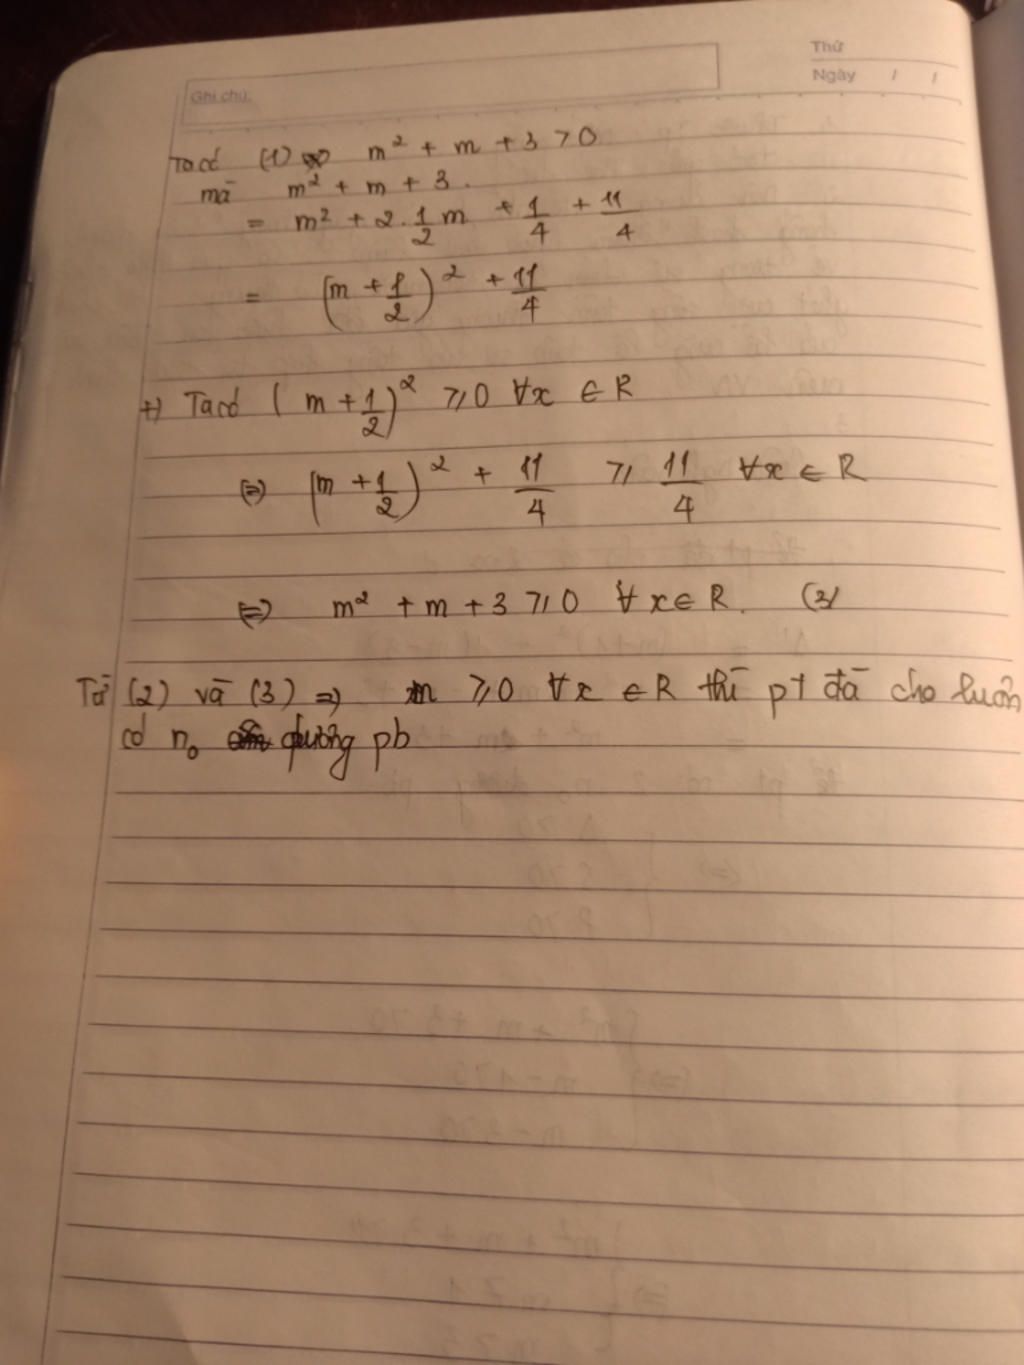 Thứ
Ngày / /
Ghi chú:
Ta có (1) m² + m + 3 > 0
mà m² + m + 3.
= m² + 2.1/2 m + 1/4 + 11/4
= (m + 1/2)² + 11/4
+) Ta có (m + 1/2)² ⩾ 0 ∀x ∈ R
(=) (m + 1/2)² + 11/4 ⩾ 11/4 ∀x ∈ R
(=) m² + m + 3 ⩾ 0 ∀x ∈ R. (3)
Từ (2) và (3) => m ⩾ 0 ∀x ∈ R thì pt đã cho luôn
có n₀ dương pb